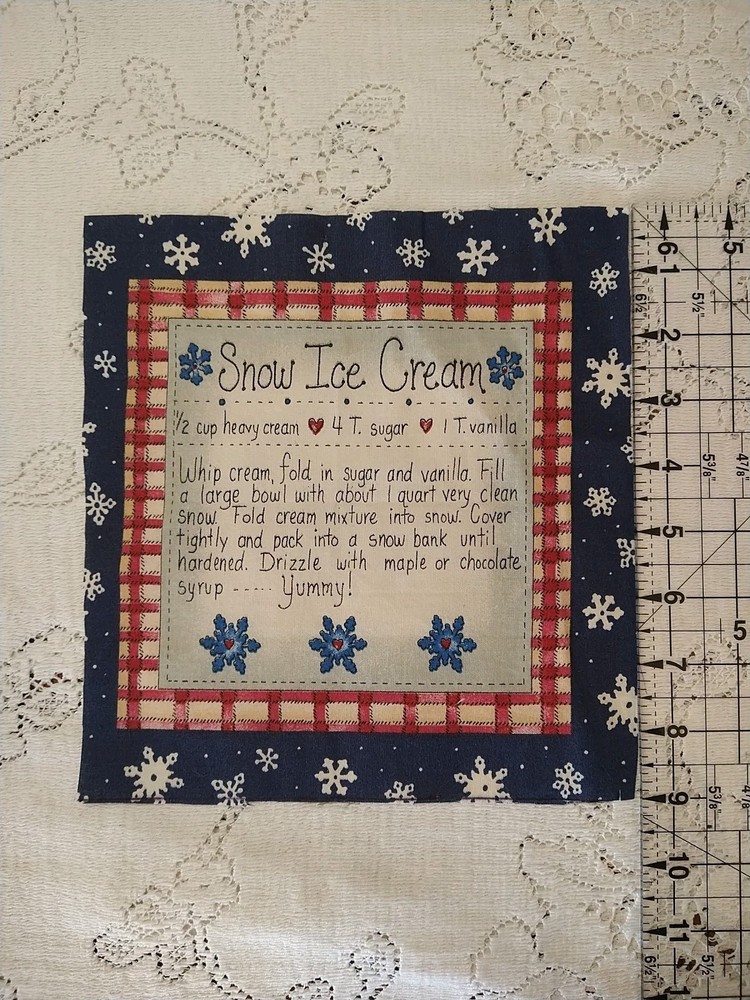 Snow Ice Cream
1/2 cup heavy cream 4 T. sugar 1 T. vanilla
Whip cream, fold in sugar and vanilla. Fill
a large bowl with about 1 quart very clean
snow. Fold cream mixture into snow. Cover
tightly and pack into a snow bank until
hardened. Drizzle with maple or chocolate
syrup ----- Yummy!
6 5
1
6½" 5½"
2
3
4
5⅜" 4⅞"
5
6
5
7
8
5⅜"
9
10
11
6½" 5½"